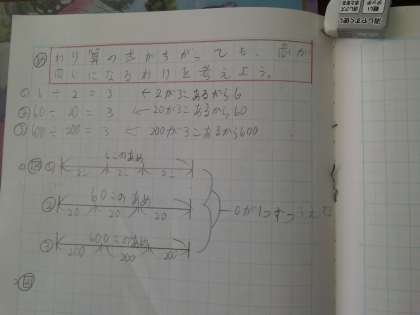 わり算の式がちがっても、答えが
同じになるわりを考えよう。
① 6 ÷ 2 = 3 ← 2が3こあるから6
② 60 ÷ 20 = 3 ← 20が3こあるから60
③ 600 ÷ 200 = 3 ← 200が3こあるから600
① 6このあめ
2こ 2こ 2こ
② 60このあめ
20 20 20
0が1つずつふえて
③ 600このあめ
200 200